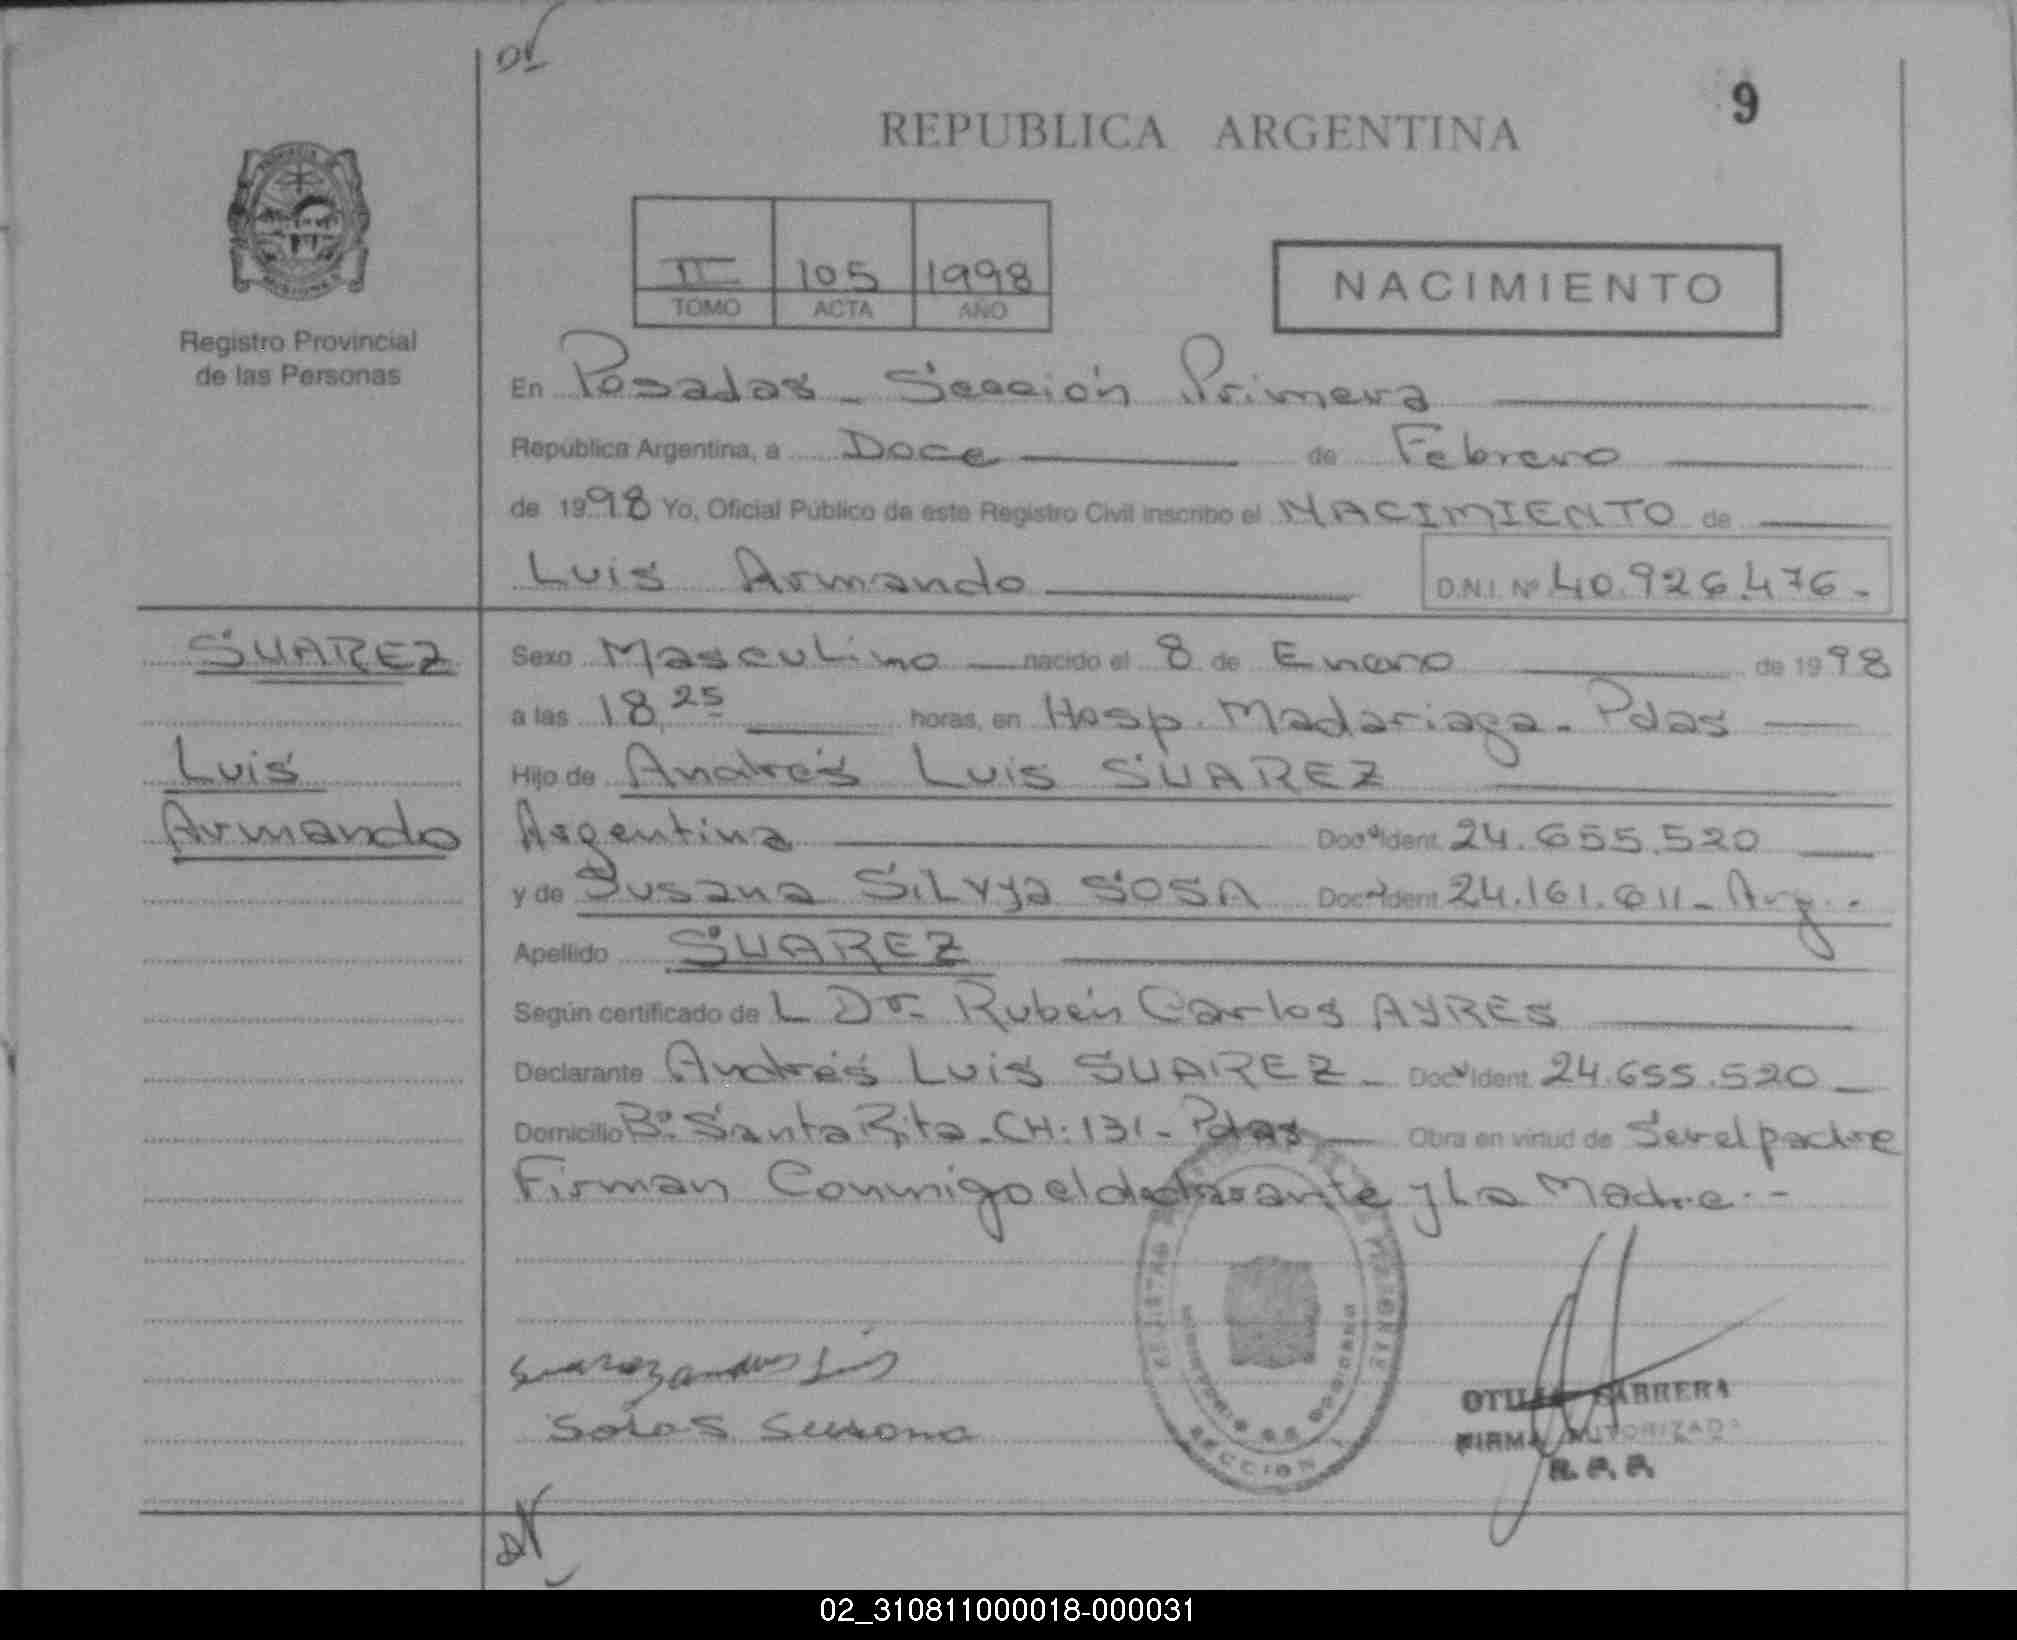 9
REPUBLICA ARGENTINA
II 105 1998
TOMO ACTA AÑO
NACIMIENTO
Registro Provincial
de las Personas
En Posadas - Sección Primera
República Argentina, a Doce de Febrero
de 1998 Yo, Oficial Público de este Registro Civil inscribo el NACIMIENTO de
Luis Armando D.N.I. Nº 40.926.476.-
SUAREZ
Luis
Armando
Sexo Masculino nacido el 8 de Enero de 1998
a las 18,25 horas, en Hosp. Madariaga - Pdas
Hijo de Andrés Luis SUAREZ
Argentina Doc. Ident. 24.655.520
y de Susana Silvya SOSA Doc. Ident. 24.161.611 - Arg.-
Apellido SUAREZ
Según certificado de L Dr. Rubén Carlos AYRES
Declarante Andrés Luis SUAREZ - Doc. Ident. 24.655.520 -
Domicilio Bº Santa Rita - CH: 131 - Pdas Obra en virtud de Ser el padre
Firman Conmigo el declarante y La Madre.-
Suarez Luis
Susana
SECCION
OTILIA CABRERA
FIRMA AUTORIZADA
02_310811000018-000031